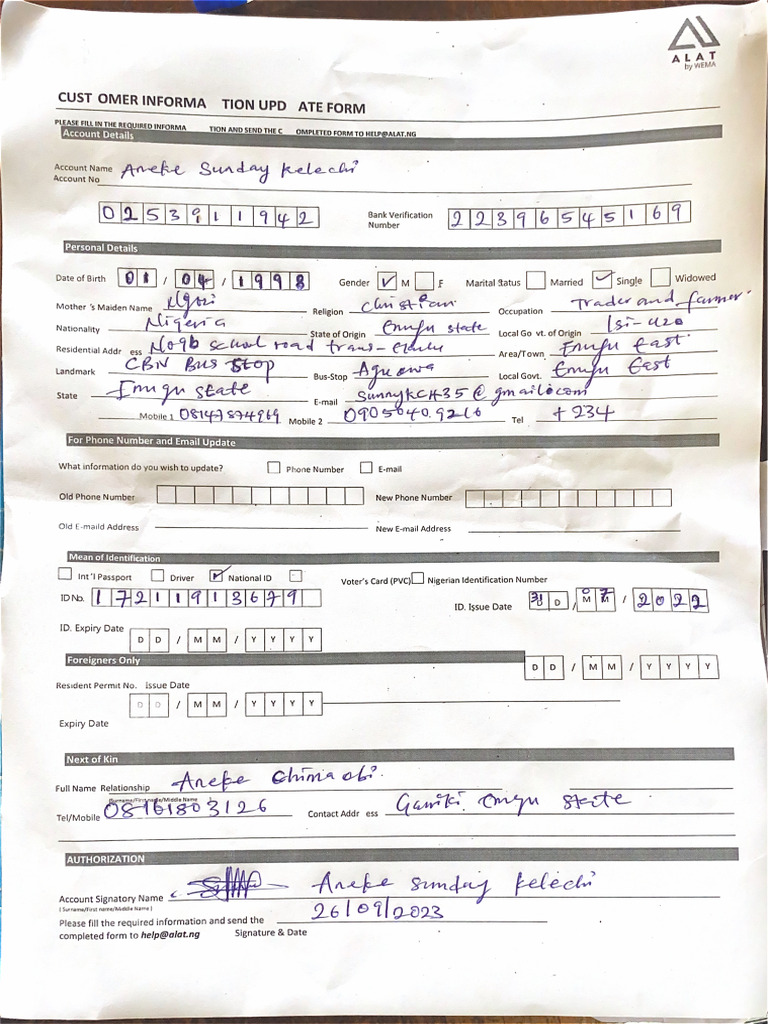 ALAT
by WEMA
CUST OMER INFORMA TION UPD ATE FORM
PLEASE FILL IN THE REQUIRED INFORMA TION AND SEND THE C OMPLETED FORM TO HELP@ALAT.NG
Account Details
Account Name Aneke Sunday Kelechi
Account No
0253911942 Bank Verification Number 22396545169
Personal Details
Date of Birth 01 / 04 / 1998 Gender M F Marital Status Married Single Widowed
Mother 's Maiden Name Ngozi Religion Christian Occupation Trader and farmer
Nationality Nigeria State of Origin Enugu state Local Go vt. of Origin Isi-uzo
Residential Addr ess No9b school road trans-Ekulu Area/Town Enugu East
Landmark CBN Bus Stop Bus-Stop Local Govt. Enugu East
State Enugu state E-mail sunnyKCH35@gmail.com
Mobile 1 08147874969 Mobile 2 09050409216 Tel +234
For Phone Number and Email Update
What information do you wish to update? Phone Number E-mail
Old Phone Number New Phone Number
Old E-maild Address New E-mail Address
Mean of Identification
Int'l Passport Driver National ID Voter's Card (PVC) Nigerian Identification Number
ID No. 17211913679 ID. Issue Date 31 / 07 / 2022
ID. Expiry Date DD / MM / YYYY
Foreigners Only DD / MM / YYYY
Resident Permit No. Issue Date
DD / MM / YYYY
Expiry Date
Next of Kin
Full Name Relationship Aneke Chinaobi
(Surname/First name/Middle Name)
Tel/Mobile 08161803126 Contact Addr ess Gariki Enugu state
AUTHORIZATION
Account Signatory Name Aneke Sunday Kelechi
( Surname/First name/Middle Name )
26/09/2023
Please fill the required information and send the
completed form to help@alat.ng Signature & Date